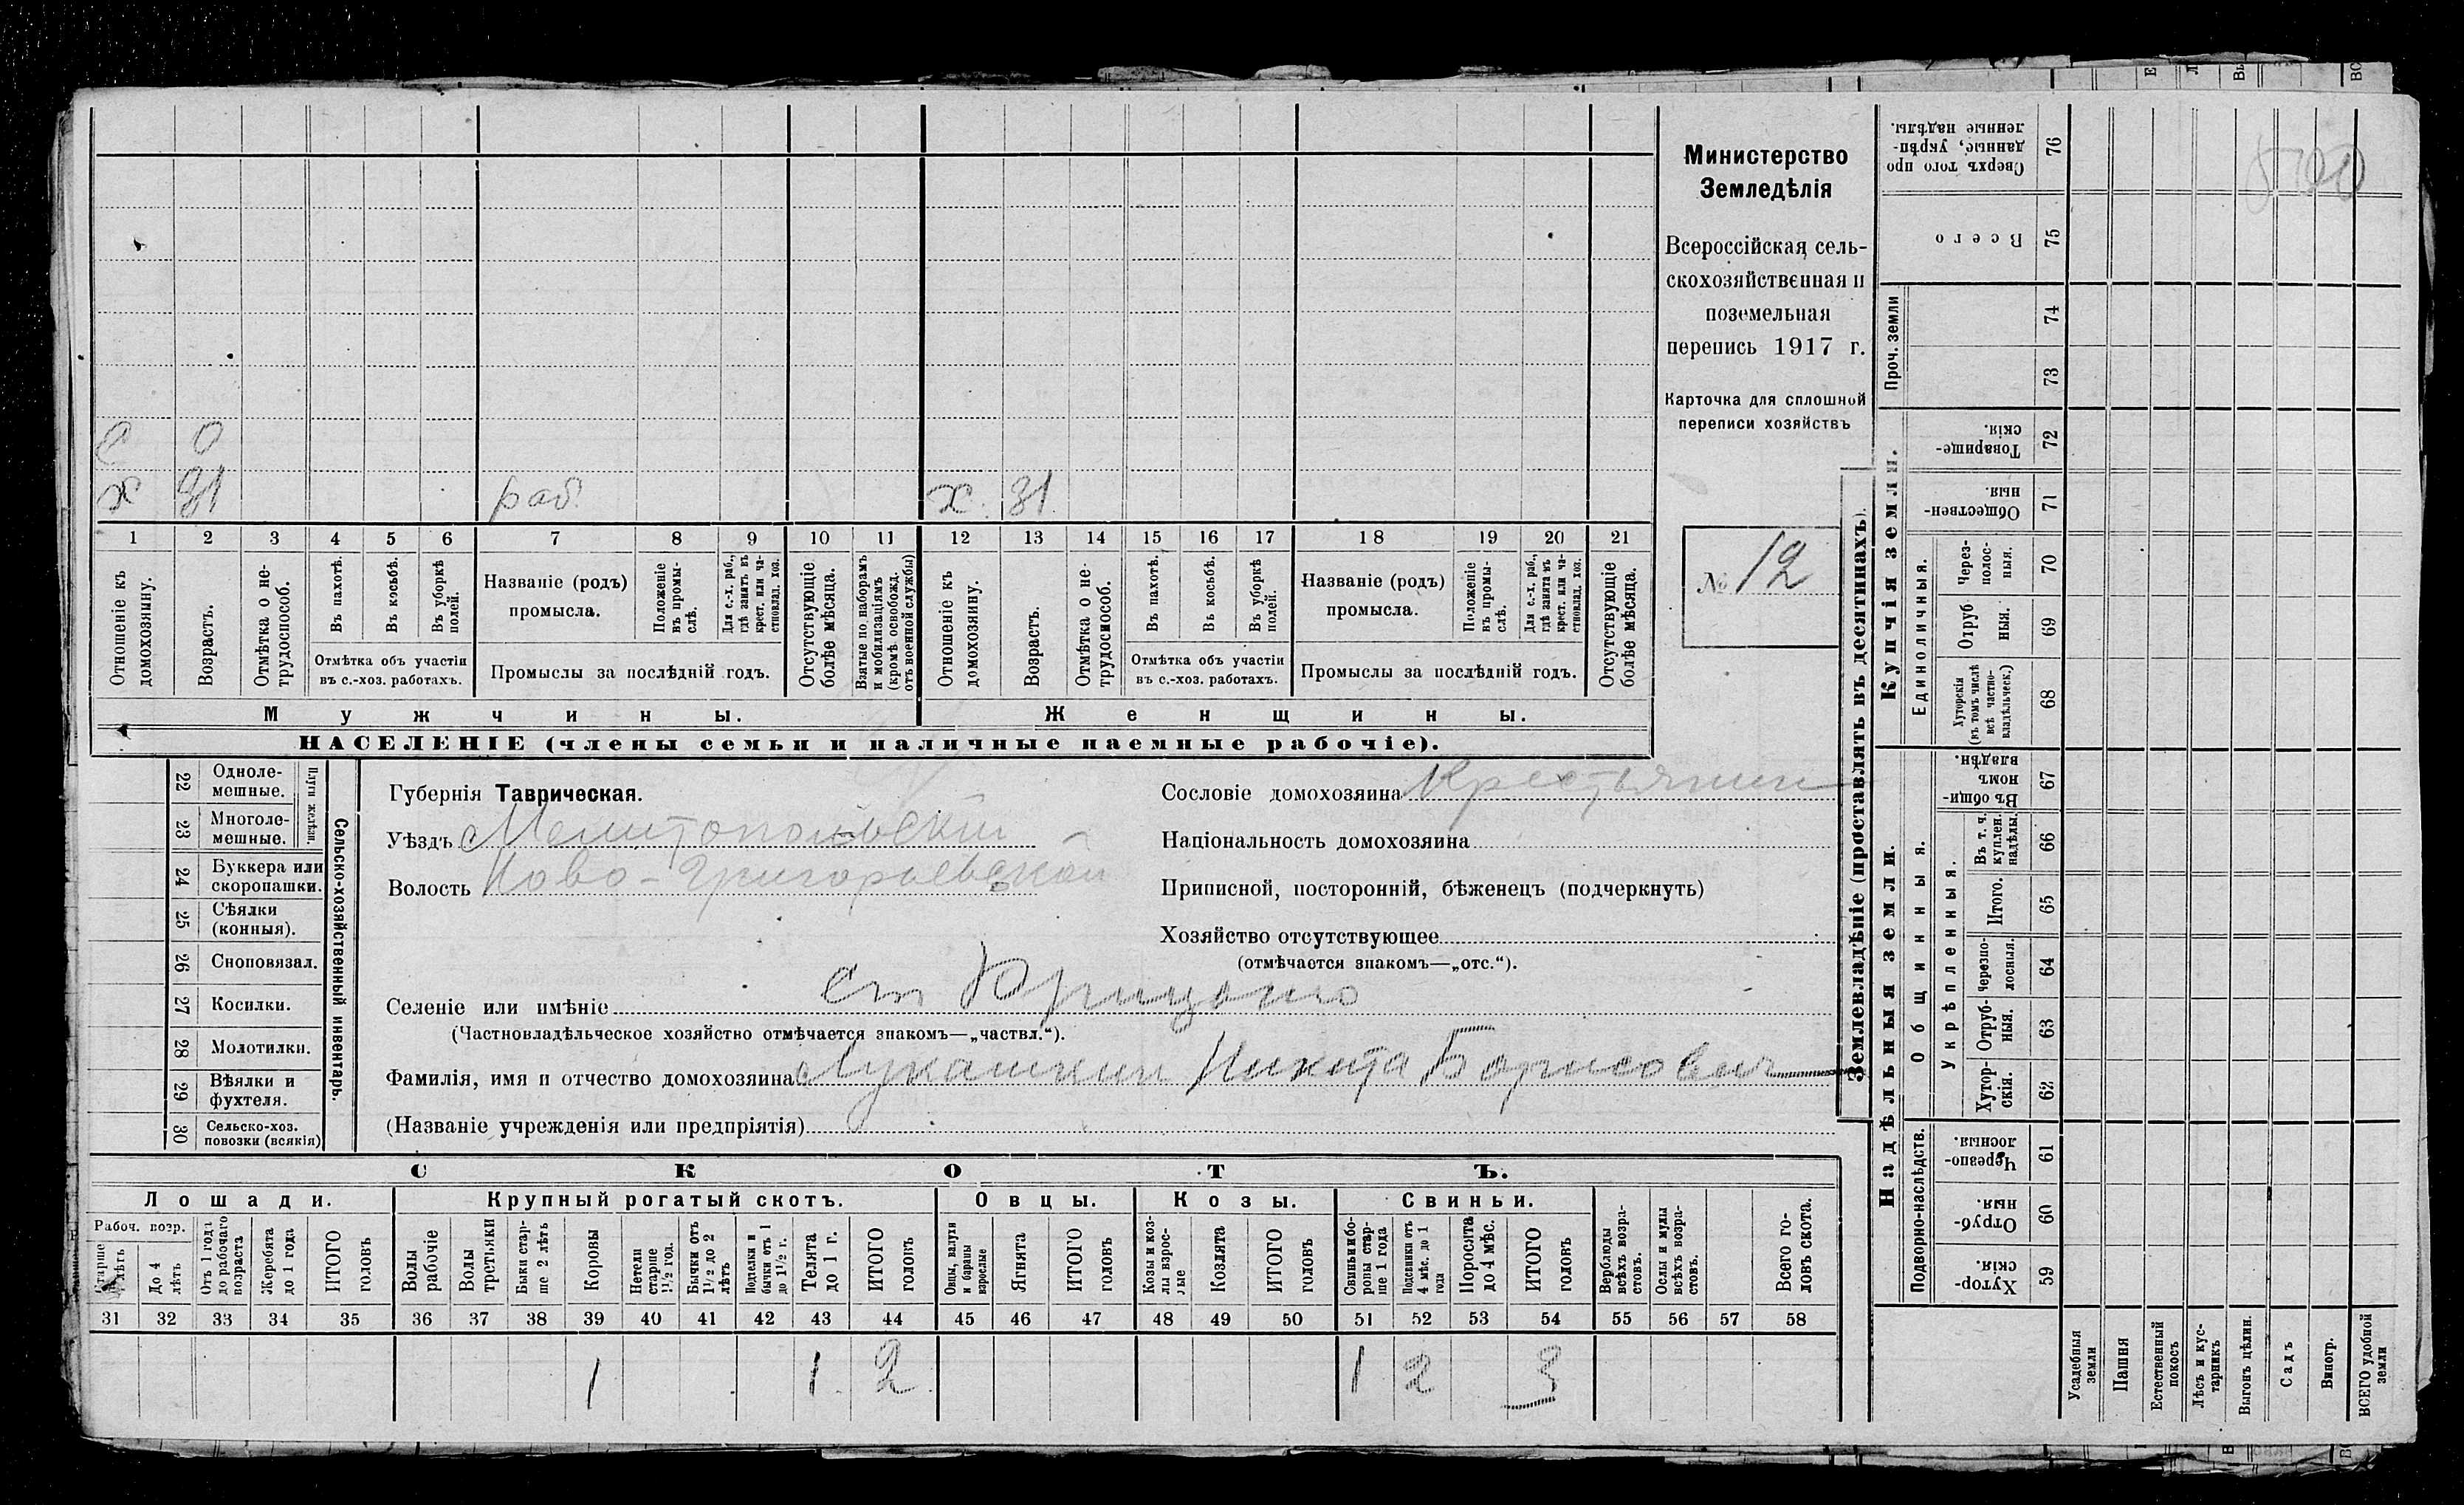 Министерство
Земледѣлія
Всероссійская сель-
скохозяйственная и
поземельная
перепись 1917 г.
Карточка для сплошной
переписи хозяйствъ
№ 12
С 0
х 31 раб. х. 31
1 2 3 4 5 6 7 8 9 10 11 12 13 14 15 16 17 18 19 20 21
Отношеніе къ домохозяину.
Возрастъ.
Отмѣтка о не-трудоспособ.
Въ пахотѣ.
Въ косьбѣ.
Въ уборкѣ полей.
Отмѣтка объ участіи
въ с.-хоз. работахъ.
Названіе (родъ)
промысла.
Положеніе въ промы-слѣ.
Для с.-х. раб., гдѣ занятъ въ крест. или ча-стновлад. хоз.
Промыслы за послѣдній годъ.
Отсутствующіе болѣе мѣсяца.
Взятые по наборамъ и мобилизаціямъ (кромѣ освобожд. отъ военной службы)
Отношеніе къ домохозяину.
Возрастъ.
Отмѣтка о не-трудоспособ.
Въ пахотѣ.
Въ косьбѣ.
Въ уборкѣ полей.
Отмѣтка объ участіи
въ с.-хоз. работахъ.
Названіе (родъ)
промысла.
Положеніе въ промы-слѣ.
Для с.-х. раб., гдѣ занята въ крест. или ча-стновлад. хоз.
Промыслы за послѣдній годъ.
Отсутствующіе болѣе мѣсяца.
Мужчины. Женщины.
НАСЕЛЕНІЕ (члены семьи и наличные наемные рабочіе).
Сельско-хозяйственный инвентарь.
Плуги желѣзн.
22 Одноле-мешные.
23 Многоле-мешные.
24 Буккера или скоропашки.
25 Сѣялки (конныя).
26 Сноповязал.
27 Косилки.
28 Молотилки.
29 Вѣялки и фухтеля.
30 Сельско-хоз. повозки (всякія)
Губернія Таврическая.
Уѣздъ Мелитопольскій
Волость Ново-Григорьевской
Сословіе домохозяина Крестьянин
Національность домохозяина
Приписной, посторонній, бѣженецъ (подчеркнуть)
Хозяйство отсутствующее
(отмѣчается знакомъ—„отс.“).
Селеніе или имѣніе ст Юрицыно
(Частновладѣльческое хозяйство отмѣчается знакомъ—„частвл.“).
Фамилія, имя и отчество домохозяина Лукашкин Никита Борисович
(Названіе учрежденія или предпріятія)
СКОТЪ.
Лошади. Крупный рогатый скотъ. Овцы. Козы. Свиньи.
Рабоч. возр.
Старше лѣтъ
До 4 лѣтъ
Отъ 1 года до рабочаго возраста
Жеребята до 1 года
ИТОГО головъ
Волы рабочіе
Волы третьяки
Быки стар-ше 2 лѣтъ
Коровы
Нетели старше 1½ год.
Бычки отъ 1½ до 2 лѣтъ
Подтелки и бычки отъ 1 до 1½ г.
Телята до 1 г.
ИТОГО головъ
Овцы, валухи и бараны взрослые
Ягнята
ИТОГО головъ
Козы и коз-лы взрос-лые
Козлята
ИТОГО головъ
Свиньи и бо-ровы стар-ше 1 года
Подсвинки отъ 4 мѣс. до 1 года
Поросята до 4 мѣс.
ИТОГО головъ
Верблюды всѣхъ возра-стовъ.
Ослы и мулы всѣхъ возра-стовъ.
Всего го-ловъ скота.
31 32 33 34 35 36 37 38 39 40 41 42 43 44 45 46 47 48 49 50 51 52 53 54 55 56 57 58
1 1 2 1 2 3
Землевладѣніе (проставлять въ десятинахъ).
Надѣльныя земли. Купчія земли.
Подворно-наслѣдств.
Общинныя.
Укрѣпленныя.
Единоличныя.
Проч. земли
59 Хутор-скія.
60 Отруб-ныя.
61 Черезпо-лосныя.
62 Хутор-скія.
63 Отруб-ныя.
64 Черезпо-лосныя.
65 Итого.
66 Въ т. ч. куплен. надѣлы.
67 Въ общи-номъ владѣн.
68 Хуторскія (въ томъ числѣ всѣ частно-владѣльческ.)
69 Отруб ныя.
70 Через-полос-ныя.
71 Обществен-ныя.
72 Товарище-скія.
73
74
75 Всего
76 Сверхъ того про данные, укрѣп-ленные надѣлы.
500
Усадебныя земли
Пашня
Естественный покосъ
Лѣсъ и кус-тарникъ
Выгонъ цѣлин.
Садъ
Виногр.
ВСЕГО удобной земли